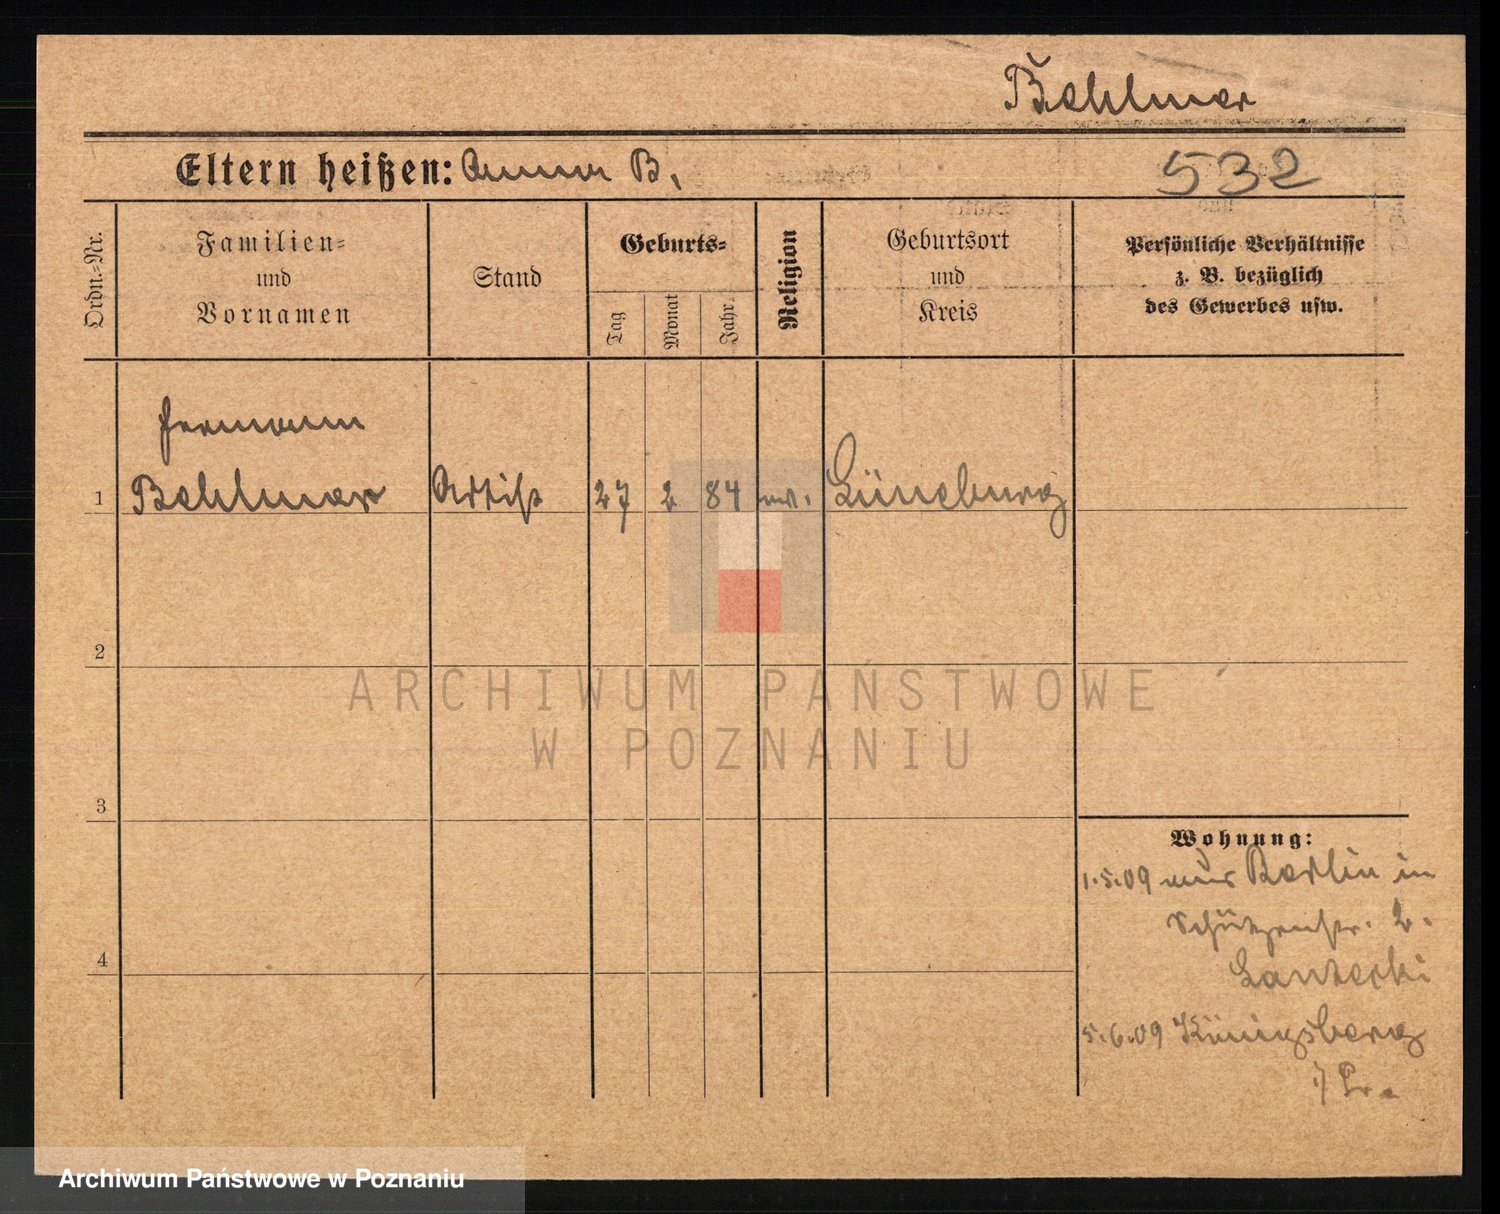 Behlmer
Eltern heißen: Anna B.
532
Ordn.-Nr.
Familien-
und
Vornamen
Stand
Geburts-
Tag
Monat
Jahr
Religion
Geburtsort
und
Kreis
Persönliche Verhältnisse
z. B. bezüglich
des Gewerbes usw.
Hermann
1 Behlmer Artist 27 2 84 ev. Lüneburg
2
ARCHIWUM PAŃSTWOWE
W POZNANIU
3
Wohnung:
1.5.09 aus Berlin in
Schützenstr. 2.
4
5.6.09 Königsberg
i/Pr.
Archiwum Państwowe w Poznaniu